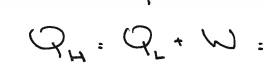 Q_H = Q_L + W =